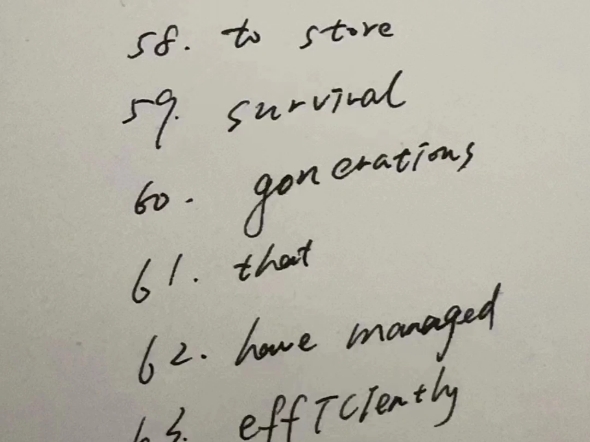 58. to store
59. survival
60. generations
61. that
62. have managed
63. efficiently